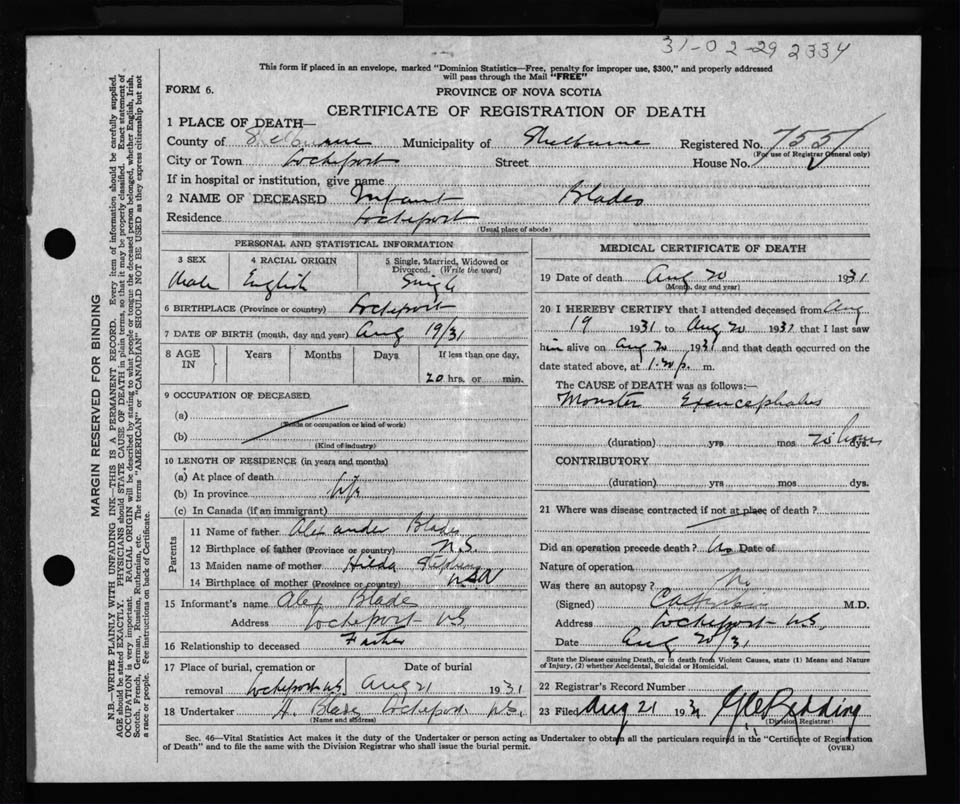 31-02-29 2334
This form if placed in an envelope, marked "Dominion Statistics—Free, penalty for improper use, $300," and properly addressed
will pass through the Mail "FREE"
FORM 6.
PROVINCE OF NOVA SCOTIA
CERTIFICATE OF REGISTRATION OF DEATH
1 PLACE OF DEATH—
County of Shelburne Municipality of Shelburne Registered No.
(For use of Registrar General only)
City or Town Lockeport Street House No.
If in hospital or institution, give name
2 NAME OF DECEASED Infant Blades
Residence Lockeport
(Usual place of abode)
PERSONAL AND STATISTICAL INFORMATION
3 SEX 4 RACIAL ORIGIN 5 Single, Married, Widowed or Divorced. (Write the word)
Male English Single
6 BIRTHPLACE (Province or country) Lockeport
7 DATE OF BIRTH (month, day and year) Aug 19/31
8 AGE IN Years Months Days If less than one day,
20 hrs. or min.
9 OCCUPATION OF DECEASED
(a)
(Trade or occupation or kind of work)
(b)
(Kind of industry)
10 LENGTH OF RESIDENCE (in years and months)
(a) At place of death
(b) In province life
(c) In Canada (if an immigrant)
Parents
11 Name of father Alexander Blades
12 Birthplace of father (Province or country) N.S.
13 Maiden name of mother Hilda
14 Birthplace of mother (Province or country)
15 Informant's name Alex Blade
Address Lockeport NS
16 Relationship to deceased Father
17 Place of burial, cremation or removal Lockeport N.S. Date of burial Aug 21 1931
18 Undertaker H. Blade Lockeport N.S.
(Name and address)
MEDICAL CERTIFICATE OF DEATH
19 Date of death Aug 20 1931
(Month, day and year)
20 I HEREBY CERTIFY that I attended deceased from Aug
19 1931 to Aug 20 1931 that I last saw
him alive on Aug 20 1931 and that death occurred on
date stated above, at 1.20 p. m.
The CAUSE OF DEATH was as follows:—
Monster Exencephalus
(duration) yrs mos 20 hours dys.
CONTRIBUTORY
(duration) yrs. mos. dys.
21 Where was disease contracted if not at place of death?
Did an operation precede death? No Date of
Nature of operation
Was there an autopsy? No
(Signed) M.D.
Address Lockeport N.S.
Date Aug 20/31
State the Disease causing Death, or in death from Violent Causes, state (1) Means and Nature
of Injury, (2) whether Accidental, Suicidal or Homicidal.
22 Registrar's Record Number
23 Filed Aug 21 193 Redding
(Division Registrar)
Sec. 46—Vital Statistics Act makes it the duty of the Undertaker or person acting as Undertaker to obtain all the particulars required in the "Certificate of Registration
of Death" and to file the same with the Division Registrar who shall issue the burial permit. (OVER)
MARGIN RESERVED FOR BINDING
N.B.—WRITE PLAINLY WITH UNFADING INK—THIS IS A PERMANENT RECORD. Every item of information should be carefully supplied.
AGE should be stated EXACTLY. PHYSICIANS should STATE CAUSE OF DEATH in plain terms, so that it may be properly classified. Exact statement of
OCCUPATION is very important. RACIAL ORIGIN will be described by stating to what people or tongue the deceased person belonged, whether English, Irish,
Scotch, French, German, Russian, Ruthenian, etc. The terms "AMERICAN" or "CANADIAN" SHOULD NOT BE USED as they express citizenship but not
a race or people. Fee instructions on back of Certificate.